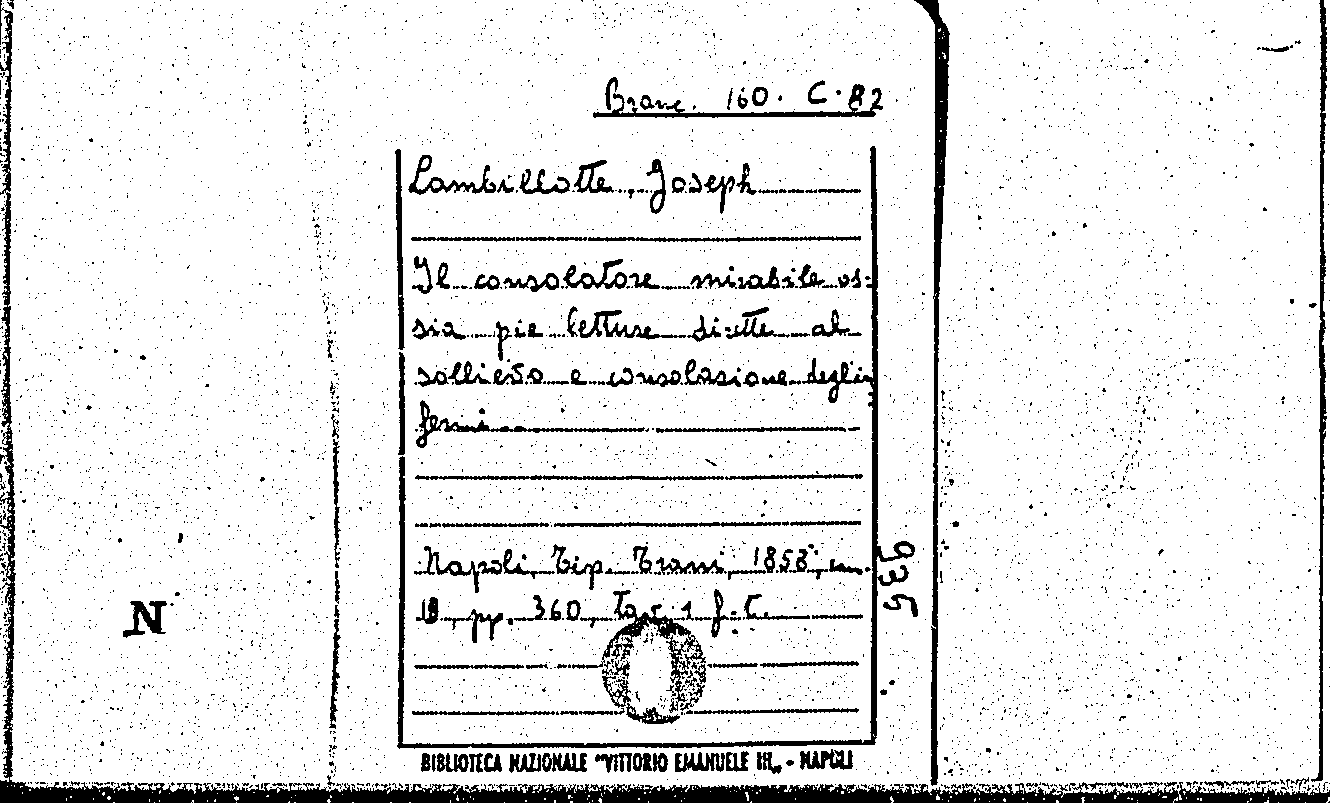 Branc. 160. C. 82
Lambillotte, Joseph
Il consolatore mirabile os=
sia pie letture dirette al
sollievo e consolazione degl'in
fermi...
Napoli, Tip. Trani, 1858, cm.
18, pp. 360, tav. 1 f. t.
935
N
BIBLIOTECA NAZIONALE "VITTORIO EMANUELE III„ - NAPOLI